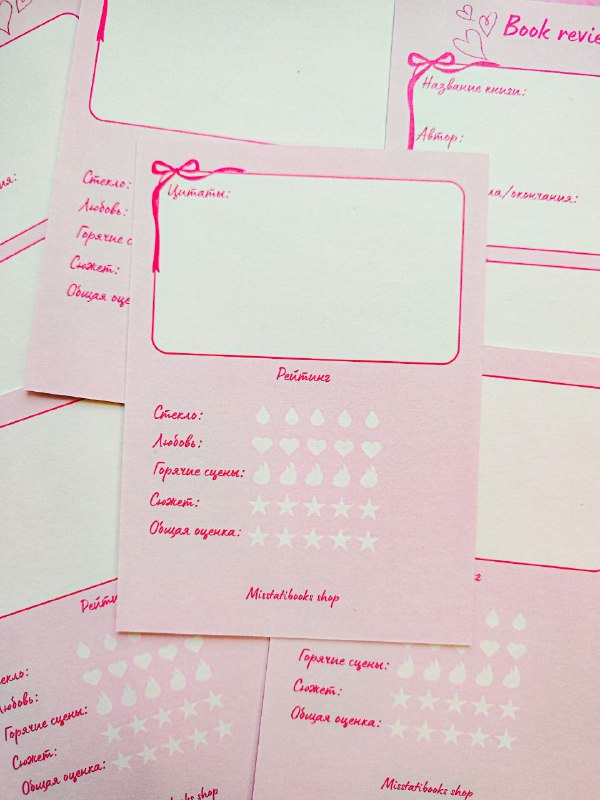 Book
Название книги:
Автор:
Стекло:
Любовь:
Горячие
Сюжет:
Общая
Цитаты:
Рейтинг
Стекло:
Любовь:
Горячие сцены:
Сюжет:
Общая оценка:
Misstatibooks shop
Горячие сцены:
Сюжет:
Общая оценка:
Misstatibooks shop
Горячие сцены:
Сюжет:
Общая оценка:
Misstatibooks shop